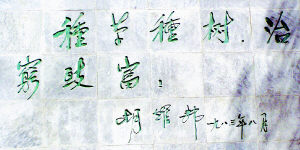 種草種树。治
窮致富！
胡耀邦 一九八三年八月